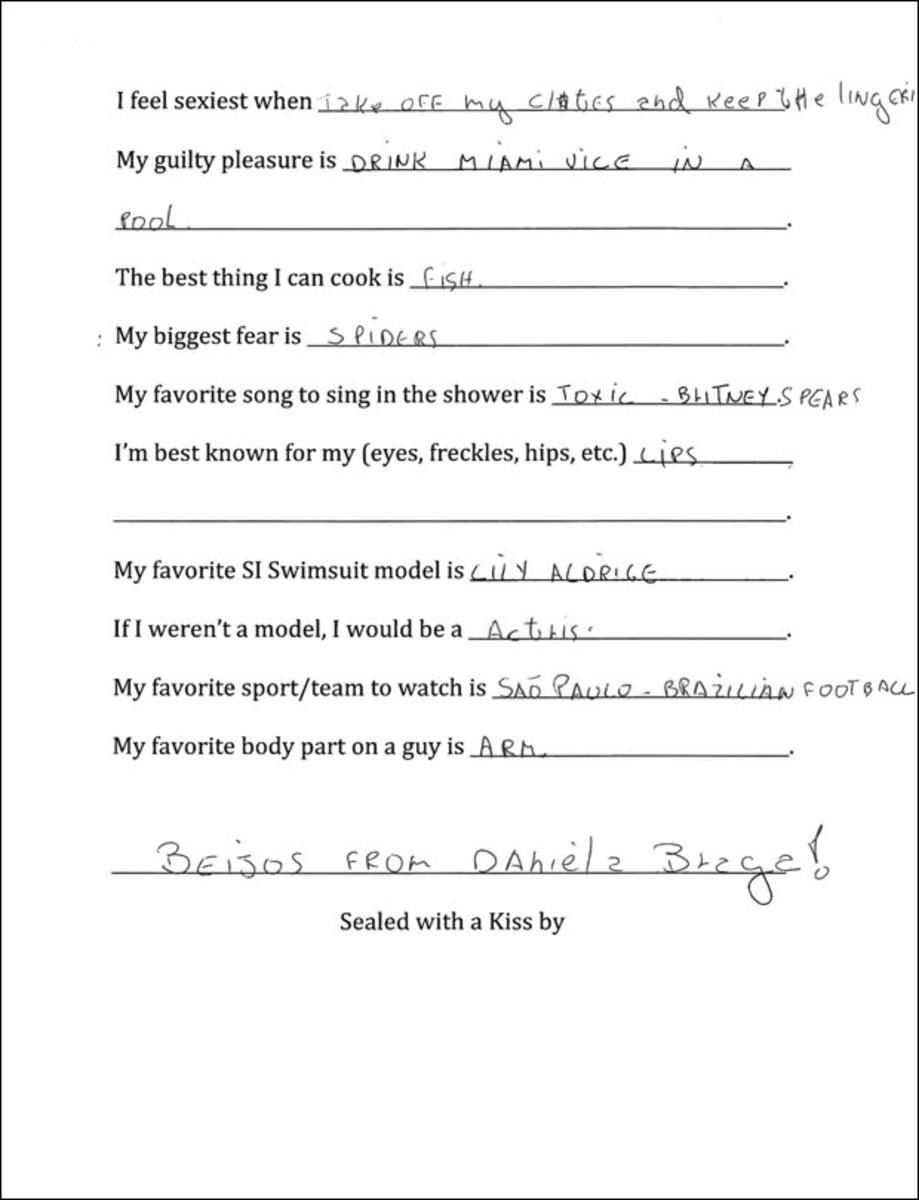 I feel sexiest when Take OFF my Cloties and keep the lingeri
My guilty pleasure is DRINK MIAMI VICE IN A
POOL.
The best thing I can cook is FISH.
: My biggest fear is SPIDERS
My favorite song to sing in the shower is TOXIC - BRITNEY SPEARS
I'm best known for my (eyes, freckles, hips, etc.) LIPS
My favorite SI Swimsuit model is LILY ALDRIGE
If I weren't a model, I would be a Actris.
My favorite sport/team to watch is SAÕ PAULO - BRAZILIAN FOOTBALL
My favorite body part on a guy is ARM.
BEIJOS FROM DAniELa Braga!
Sealed with a Kiss by